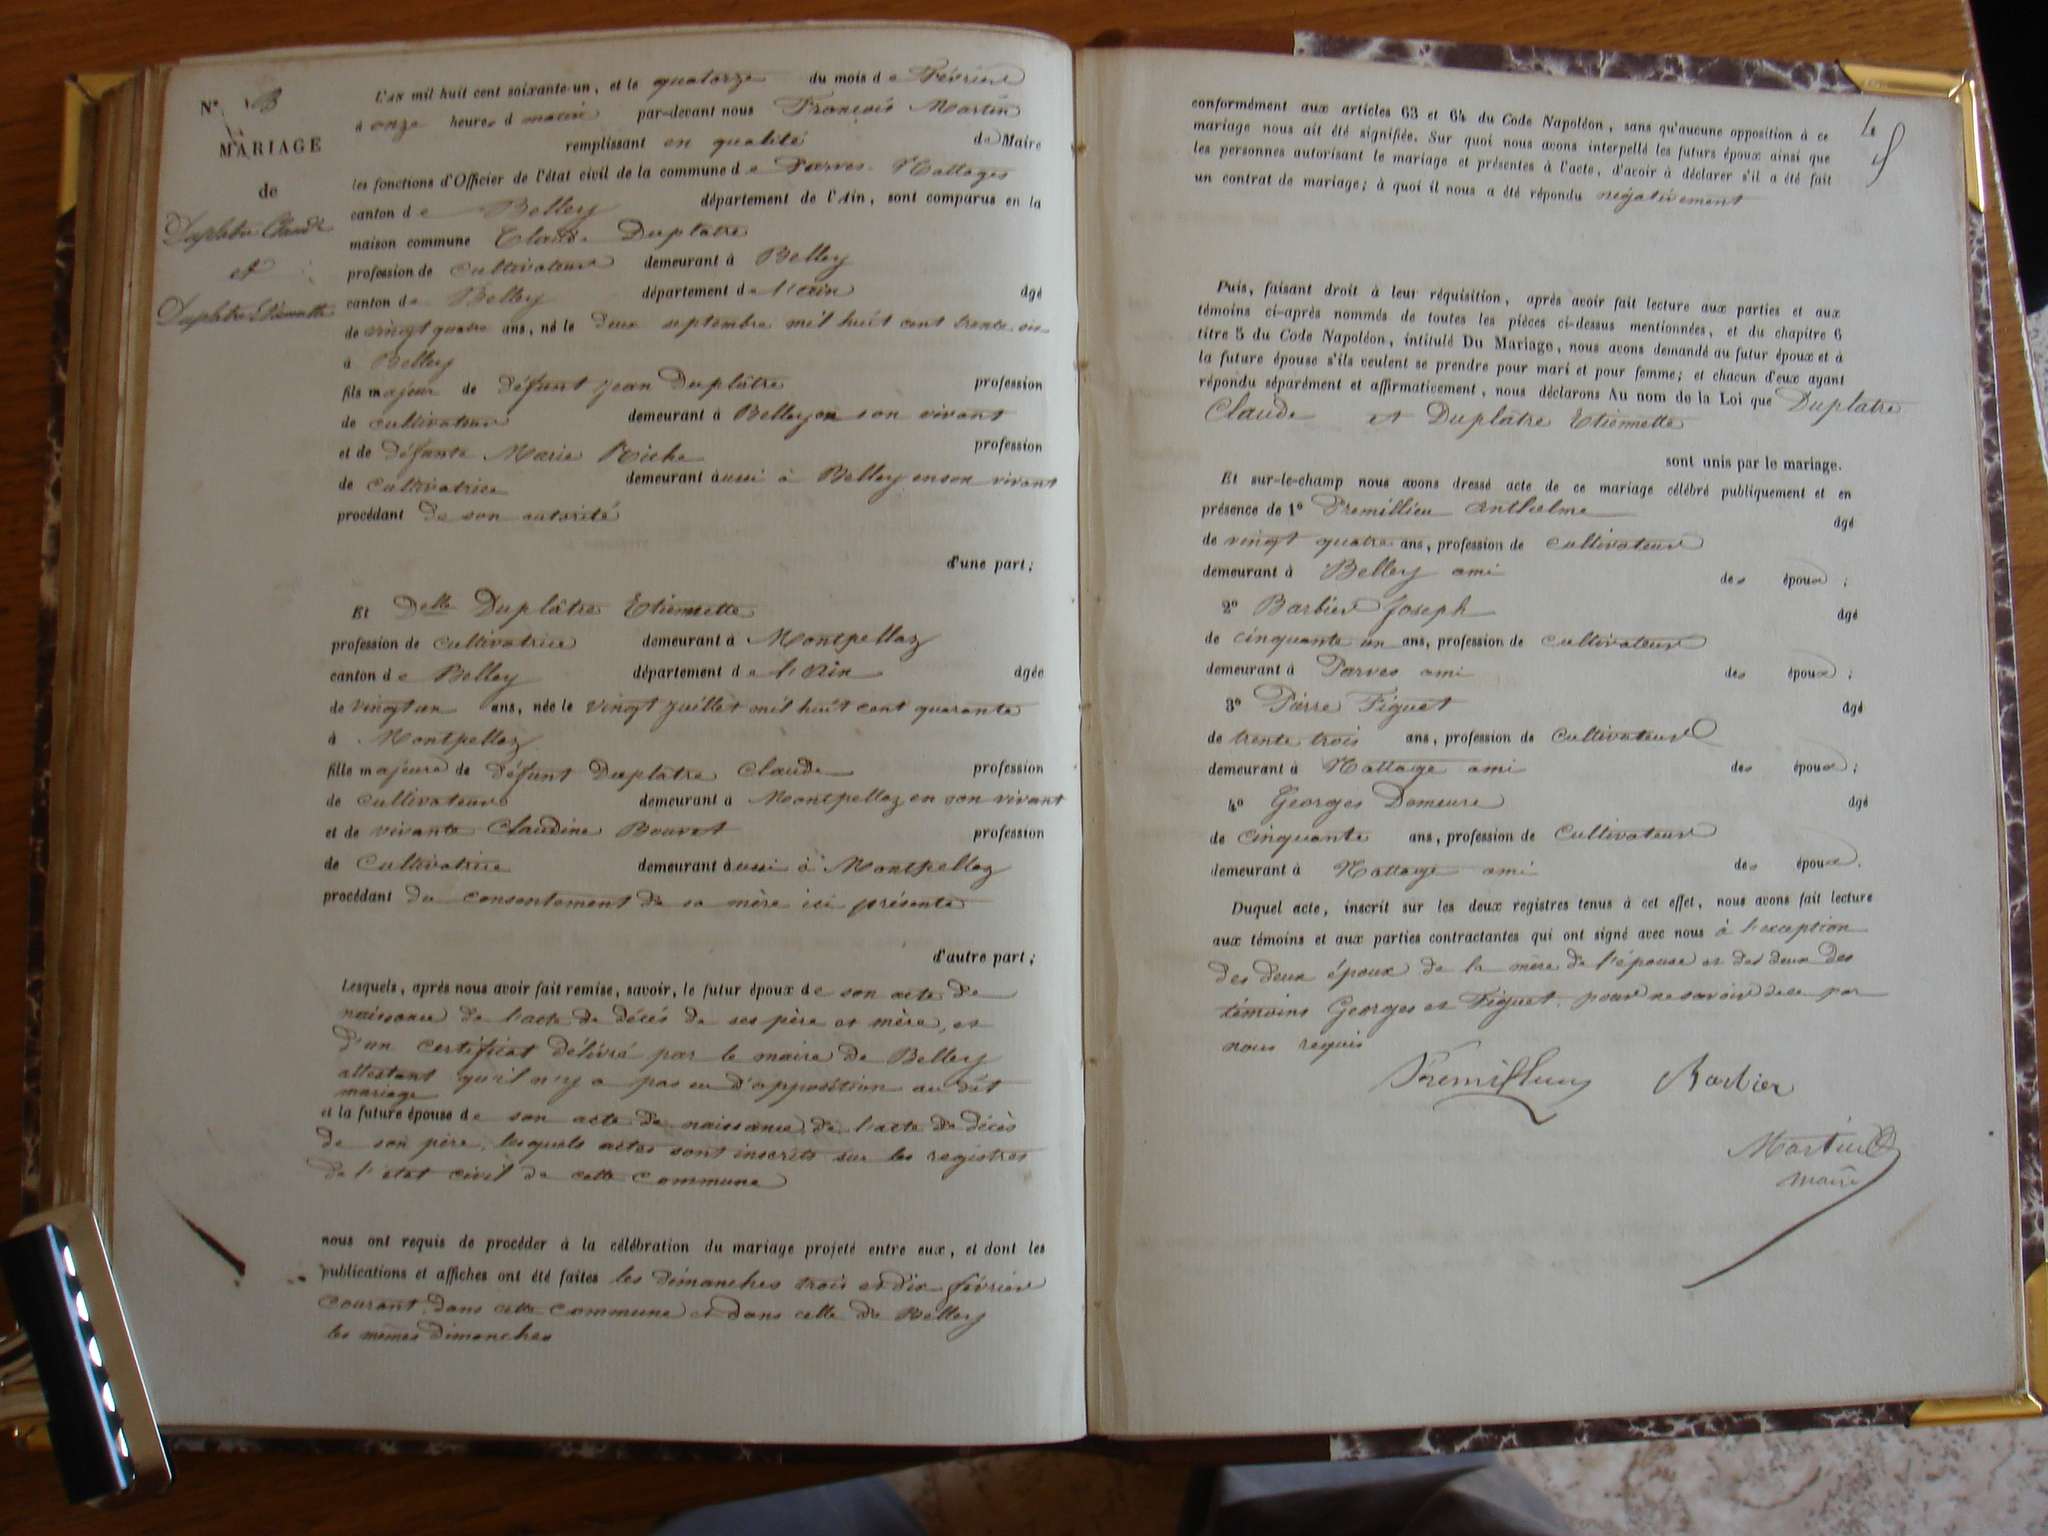 N°
MARIAGE
de
Duplatre Claude
et
Duplatre Etiennette
L'AN mil huit cent soixante-un, et le quatorze du mois de Février
à onze heures d matin par-devant nous François Martin
remplissant en qualité de Maire
les fonctions d'Officier de l'état civil de la commune de Parves-Nattages
canton de Belley département de l'Ain, sont comparus en la
maison commune Claude Duplatre
profession de cultivateur demeurant à Belley
canton de Belley département de l'Ain âgé
de vingt quatre ans, né le deux septembre mil huit cent trente six
à Belley
fils majeur de défunt Jean Duplâtre profession
de cultivateur demeurant à Belley en son vivant
et de défunte Marie Riche profession
de cultivatrice demeurant aussi à Belley en son vivant
procédant de son autorité
d'une part;
Et Delle Duplâtre Etiennette
profession de cultivatrice demeurant à Montpellaz
canton de Belley département de l'Ain âgée
de vingt un ans, née le vingt juillet mil huit cent quarante
à Montpellaz
fille majeure de défunt Duplatre Claude profession
de cultivateur demeurant à Montpellaz en son vivant
et de vivante Claudine Bouvet profession
de Cultivatrice demeurant aussi à Montpellaz
procédant du consentement de sa mère ici présente
d'autre part;
Lesquels, après nous avoir fait remise, savoir, le futur époux de son acte de
naissance de l'acte de décés de ses père et mère, et
d'un certificat délivré par le maire de Belley
attestant qu'il n'y a pas eu d'opposition au dit
mariage
et la future épouse de son acte de naissance, de l'acte de décès
de son père, lesquels actes sont inscrits sur les registres
de l'état civil de cette commune
nous ont requis de procéder à la célébration du mariage projeté entre eux, et dont les
publications et affiches ont été faites les dimanches trois et dix février
courant dans cette commune et dans celle de Belley
les mêmes Dimanches
conformément aux articles 63 et 64 du Code Napoléon, sans qu'aucune opposition à ce
mariage nous ait été signifiée. Sur quoi nous avons interpellé les futurs époux ainsi que
les personnes autorisant le mariage et présentes à l'acte, d'avoir à déclarer s'il a été fait
un contrat de mariage; à quoi il nous a été répondu négativement
Puis, faisant droit à leur réquisition, après avoir fait lecture aux parties et aux
témoins ci-après nommés de toutes les pièces ci-dessus mentionnées, et du chapitre 6
titre 5 du Code Napoléon, intitulé Du Mariage, nous avons demandé au futur époux et à
la future épouse s'ils veulent se prendre pour mari et pour femme; et chacun d'eux ayant
répondu séparément et affirmativement, nous déclarons Au nom de la Loi que Duplatre
Claude et Duplatre Etiennette
sont unis par le mariage.
Et sur-le-champ nous avons dressé acte de ce mariage célébré publiquement et en
présence de 1° Premillieu Anthelme âgé
de vingt quatre ans, profession de cultivateur
demeurant à Belley ami des époux;
2° Barbier Joseph âgé
de cinquante un ans, profession de cultivateur
demeurant à Parves ami des époux;
3° Pierre Figuet âgé
de trente trois ans, profession de Cultivateur
demeurant à Nattage ami des époux;
4° Georges Domeure âgé
de cinquante ans, profession de Cultivateur
demeurant à Nattage ami des époux.
Duquel acte, inscrit sur les deux registres tenus à cet effet, nous avons fait lecture
aux témoins et aux parties contractantes qui ont signé avec nous à l'exception
des deux époux de la mère de l'épouse et des deux des
témoins Georges et Figuet pour ne savoir de ce par
nous requis
Premillieu Barbier
Martin
maire